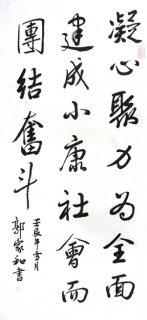 凝心聚力为全面
建成小康社會而
團结奮斗
壬辰年
郭家和書